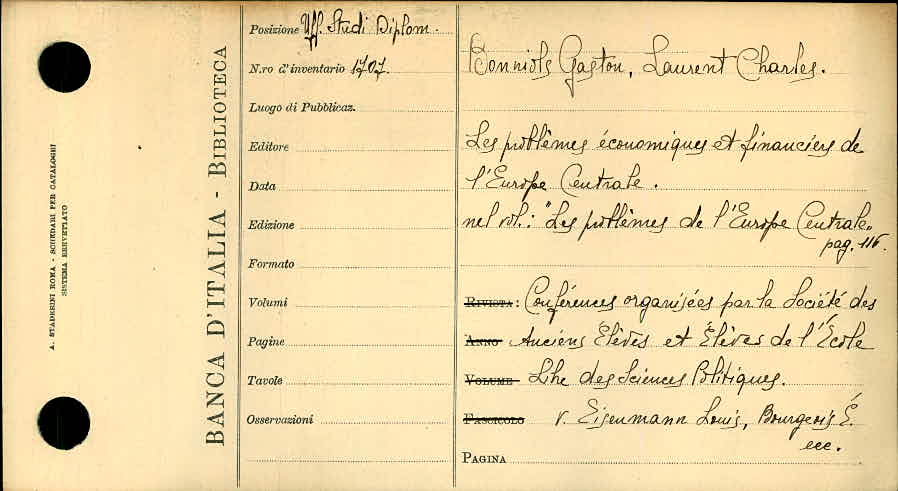 A. STADERINI ROMA - SCHEDARI PER CATALOGHI
SISTEMA BREVETTATO
BANCA D'ITALIA - BIBLIOTECA
Posizione Uff. Studi Diplom.
N.ro d'inventario 1707.
Luogo di Pubblicaz.
Editore
Data
Edizione
Formato
Volumi
Pagine
Tavole
Osservazioni
Bonniols Gaston, Laurent Charles.
Les problèmes économiques et financiers de
l'Europe Centrale.
nel vol.: "Les problèmes de l'Europe Centrale"
pag. 116.
RIVISTA: Conférences organisées par la Société des
ANNO Anciens Elèves et Élèves de l'École
VOLUME Libre des Sciences Politiques.
FASCICOLO v. Eisenmann Louis, Bourgeois É.
ecc.
PAGINA